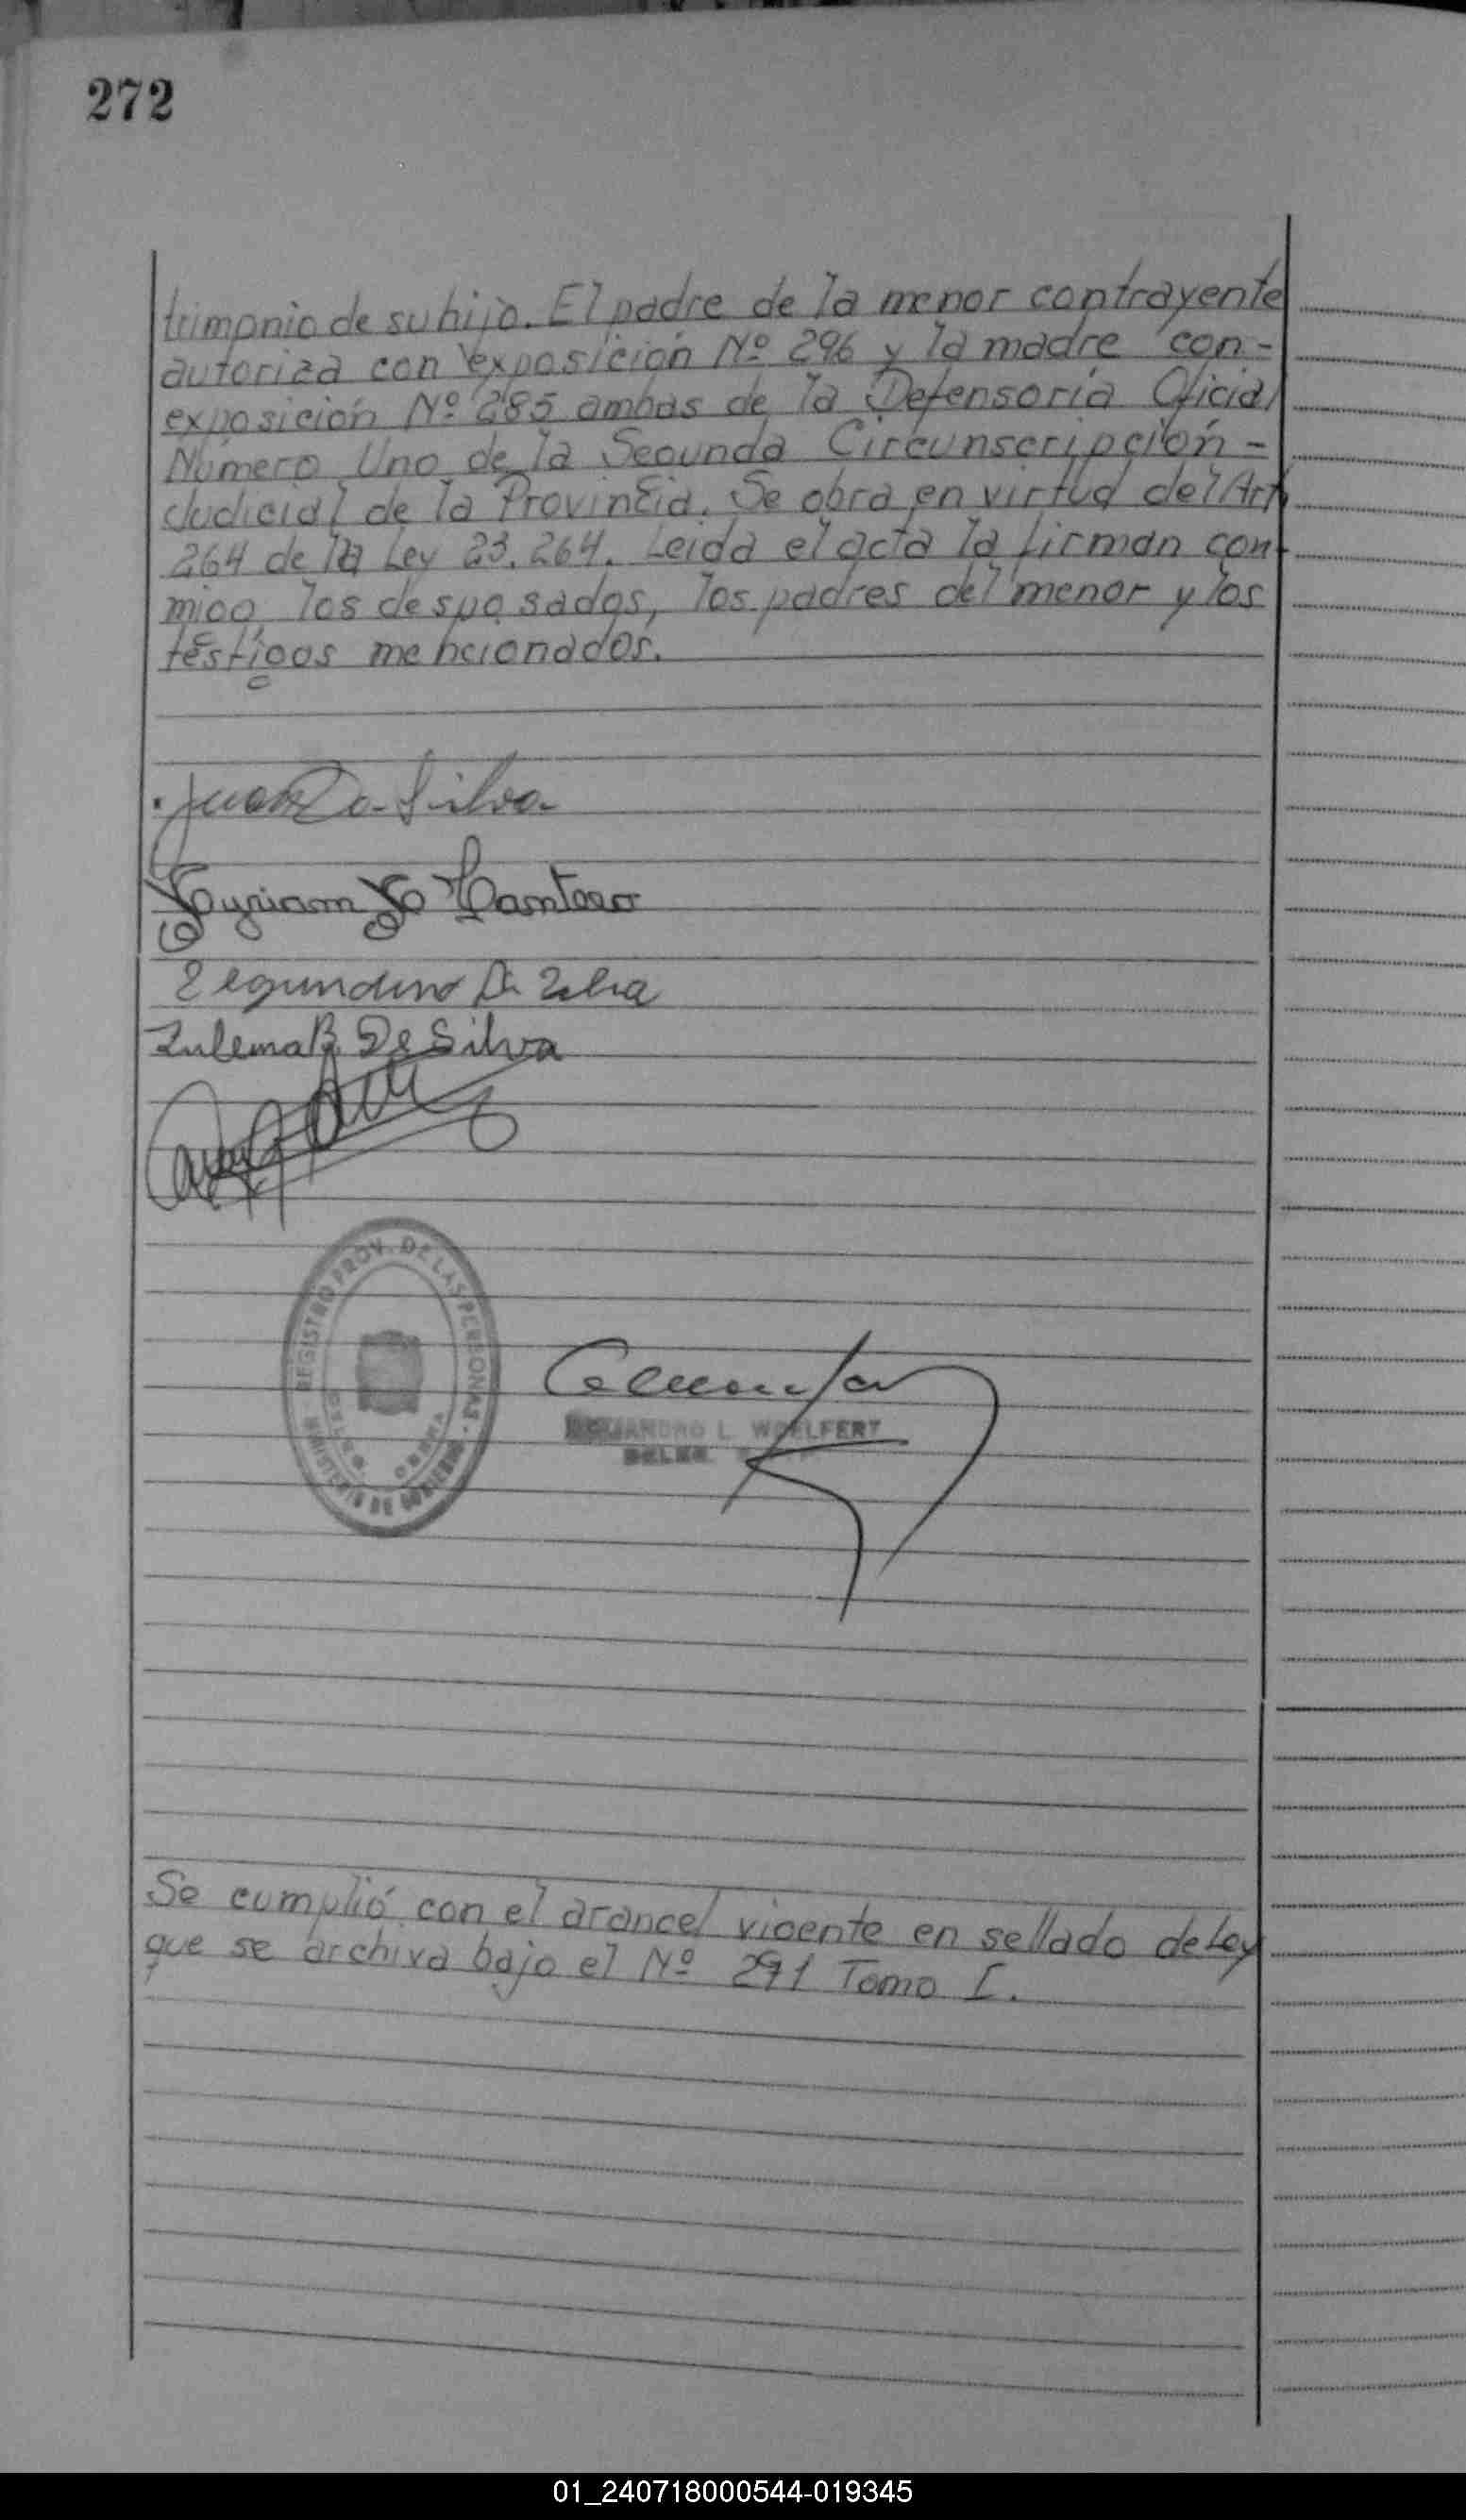 272
trimonio de su hijo. El padre de la menor contrayente
autoriza con exposición Nº 296 y la madre con-
exposición Nº 285 ambas de la Defensoría Oficial
Número Uno de la Segunda Circunscripción-
Judicial de la Provincia. Se obra en virtud del Art
264 de la Ley 23.264. Leída el acta la firman con
migo los desposados, los padres del menor y los
testigos mencionados.
Juan Da Silva
Myriam
Segundino Da Silva
Zulema B. De Silva
REGISTRO PROV. DE LAS PERSONAS
MINISTERIO DE GOBIERNO
OBERA
L. WOELFERT
Se cumplió con el arancel vigente en sellado de Ley
que se archiva bajo el Nº 291 Tomo I.
01_240718000544-019345